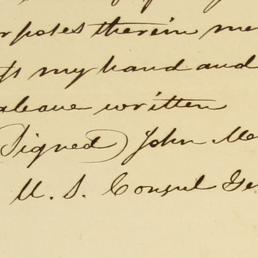 rposes therein me
my hand and
above written
(Signed) John Me
U. S. Consul Ge